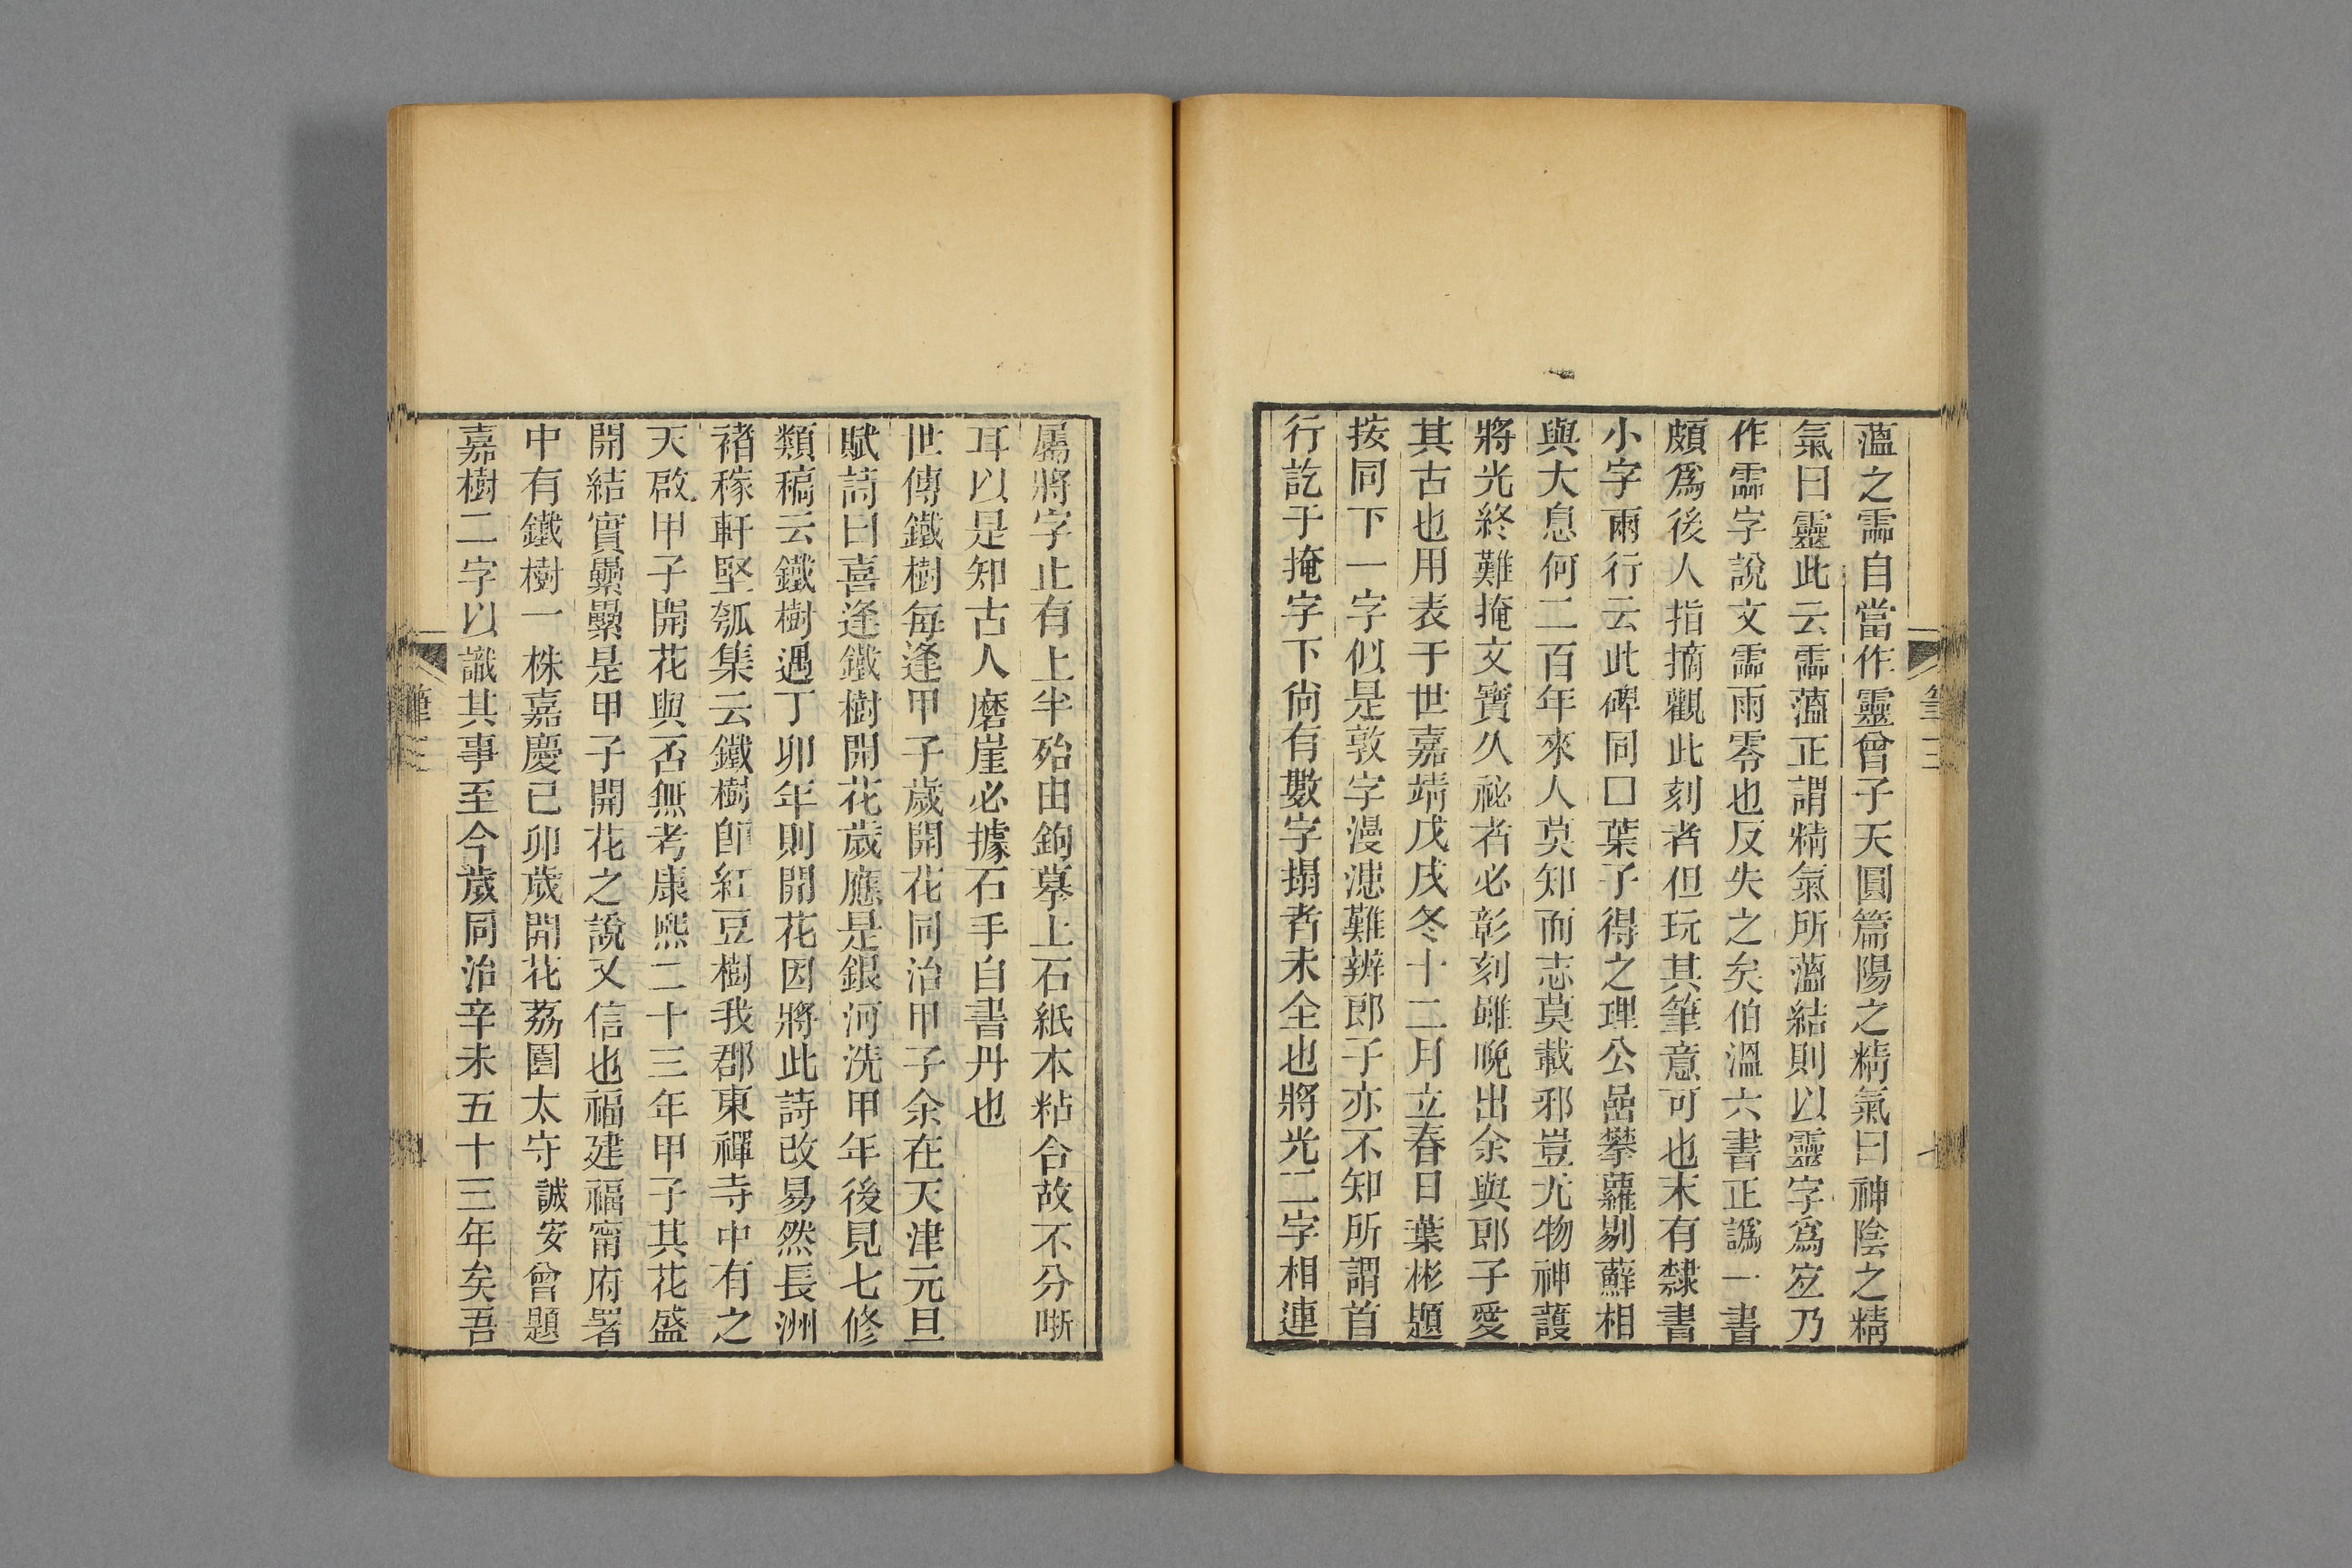 薀之霝自當作靈曾子天圓篇陽之精氣曰神陰之精
氣曰靈此云霝薀正謂精氣所薀結則以靈字爲宐乃
作霝字說文霝雨零也反失之矣伯溫六書正譌一書
頗爲後人指摘觀此刻者但玩其筆意可也末有隸書
小字兩行云此碑同口葉子得之理公嵒攀蘿剔蘚相
與大息何二百年來人莫知而志莫載邪豈尤物神護
將光終難掩文寶久祕者必彰刻雖晚出余與郎子愛
其古也用表于世嘉靖戊戌冬十二月立春日葉彬題
按同下一字似是敦字漫漶難辨郎子亦不知所謂首
行訖于掩字下尙有數字搨者未全也將光二字相連
筆三
七
屬將字止有上半殆由鉤摹上石紙本粘合故不分晰
耳以是知古人磨崖必據石手自書丹也
世傳鐵樹每逢甲子歲開花同治甲子余在天津元旦
賦詩曰喜逢鐵樹開花歲應是銀河洗甲年後見七修
類稿云鐵樹遇丁卯年則開花因將此詩改易然長洲
褚稼軒堅瓠集云鐵樹卽紅豆樹我郡東禪寺中有之
天啟甲子開花與否無考康熙二十三年甲子其花盛
開結實纍纍是甲子開花之說又信也福建福甯府署
中有鐵樹一株嘉慶己卯歲開花荔園太守誠安曾題
嘉樹二字以識其事至今歲同治辛未五十三年矣吾
筆三